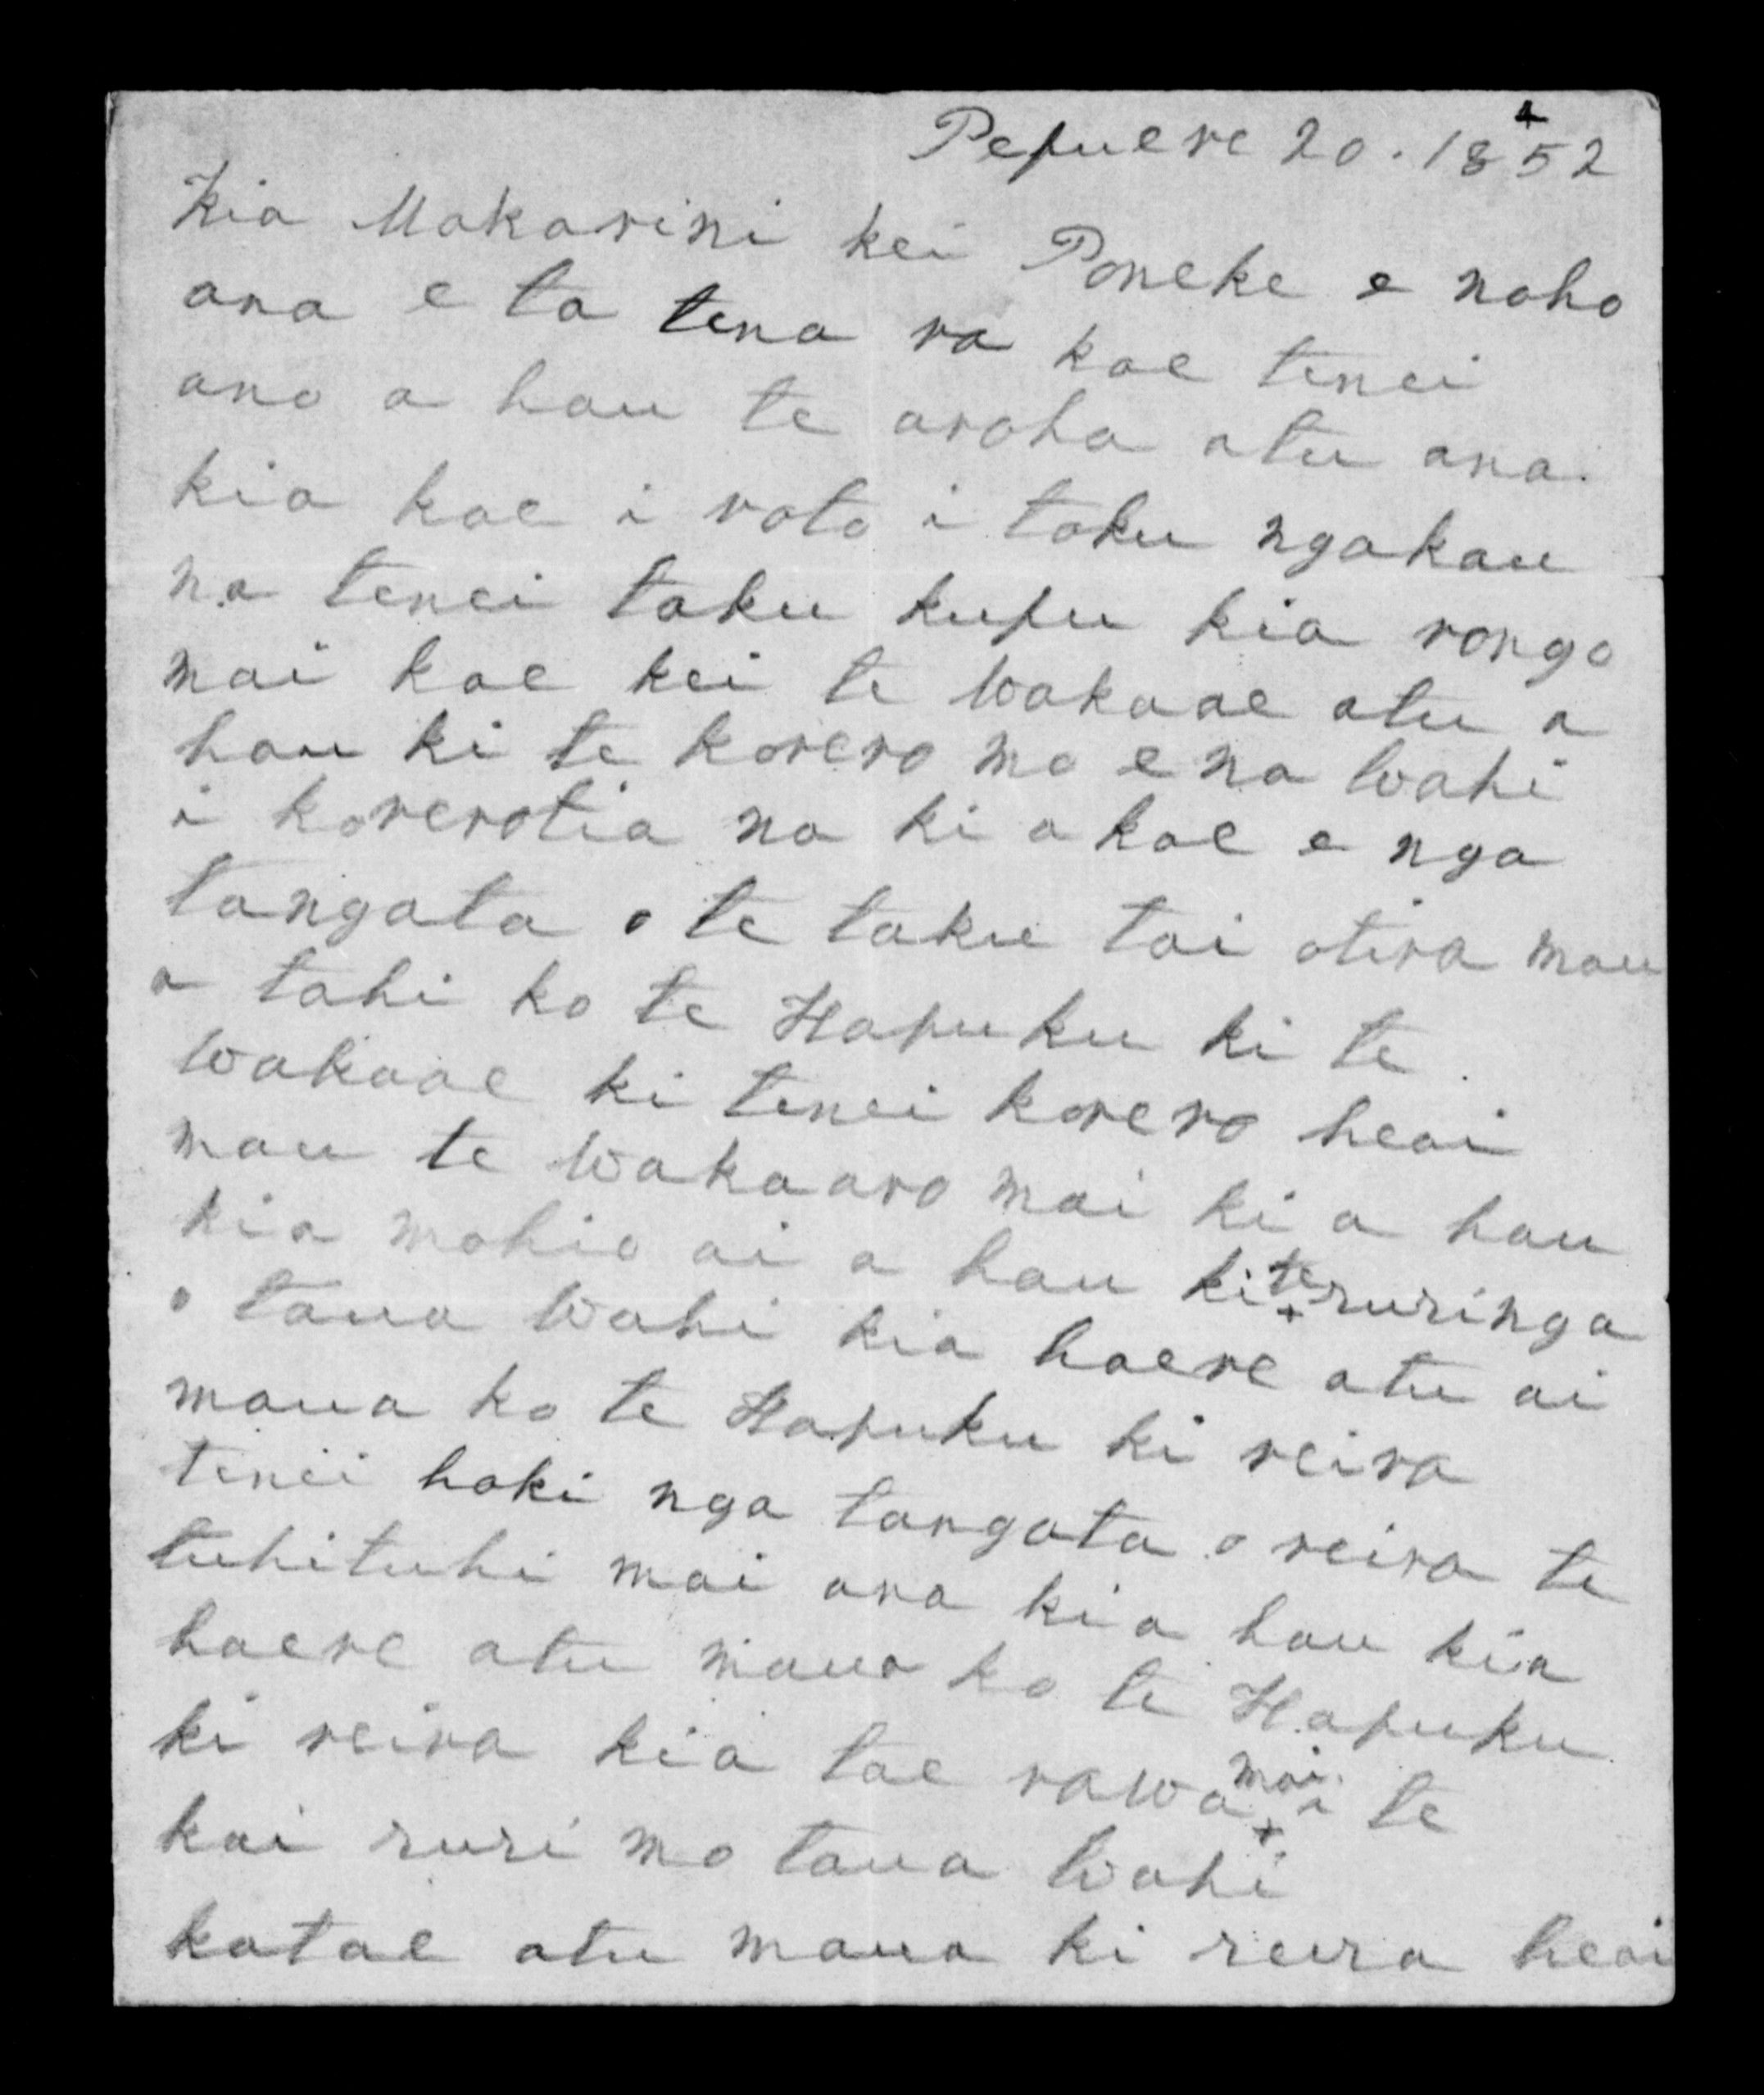 Pepuere 20. 1852
4
Kia Makarini kei Poneke e noho
ana e ta tena ra koe tenei
ano a hau te aroha atu ana.
kia koe i roto i toku ngakau
na tenei taku kupu kia rongo
mai koe kei te wakaae atu a
hau ki te korero mo e na wahi
i korerotia na ki a koe e nga
tangata o te taku tai otira mau
a tahi ko te Hapuku ki te
wakaae ki tenei korero heoi
mau te wakaaro mai ki a hau
kia mohio ai a hau ki te ruringa
o taua wahi kia haere atu ai
maua ko te Hapuku ki reira
tenei hoki nga tangata o reira te
tuhituhi mai ana ki a hau kia
haere atu maua ko te Hapuku
ki reira kia tae rawa mai te
kai ruri mo taua wahi
katae atu maua ki reira heoi